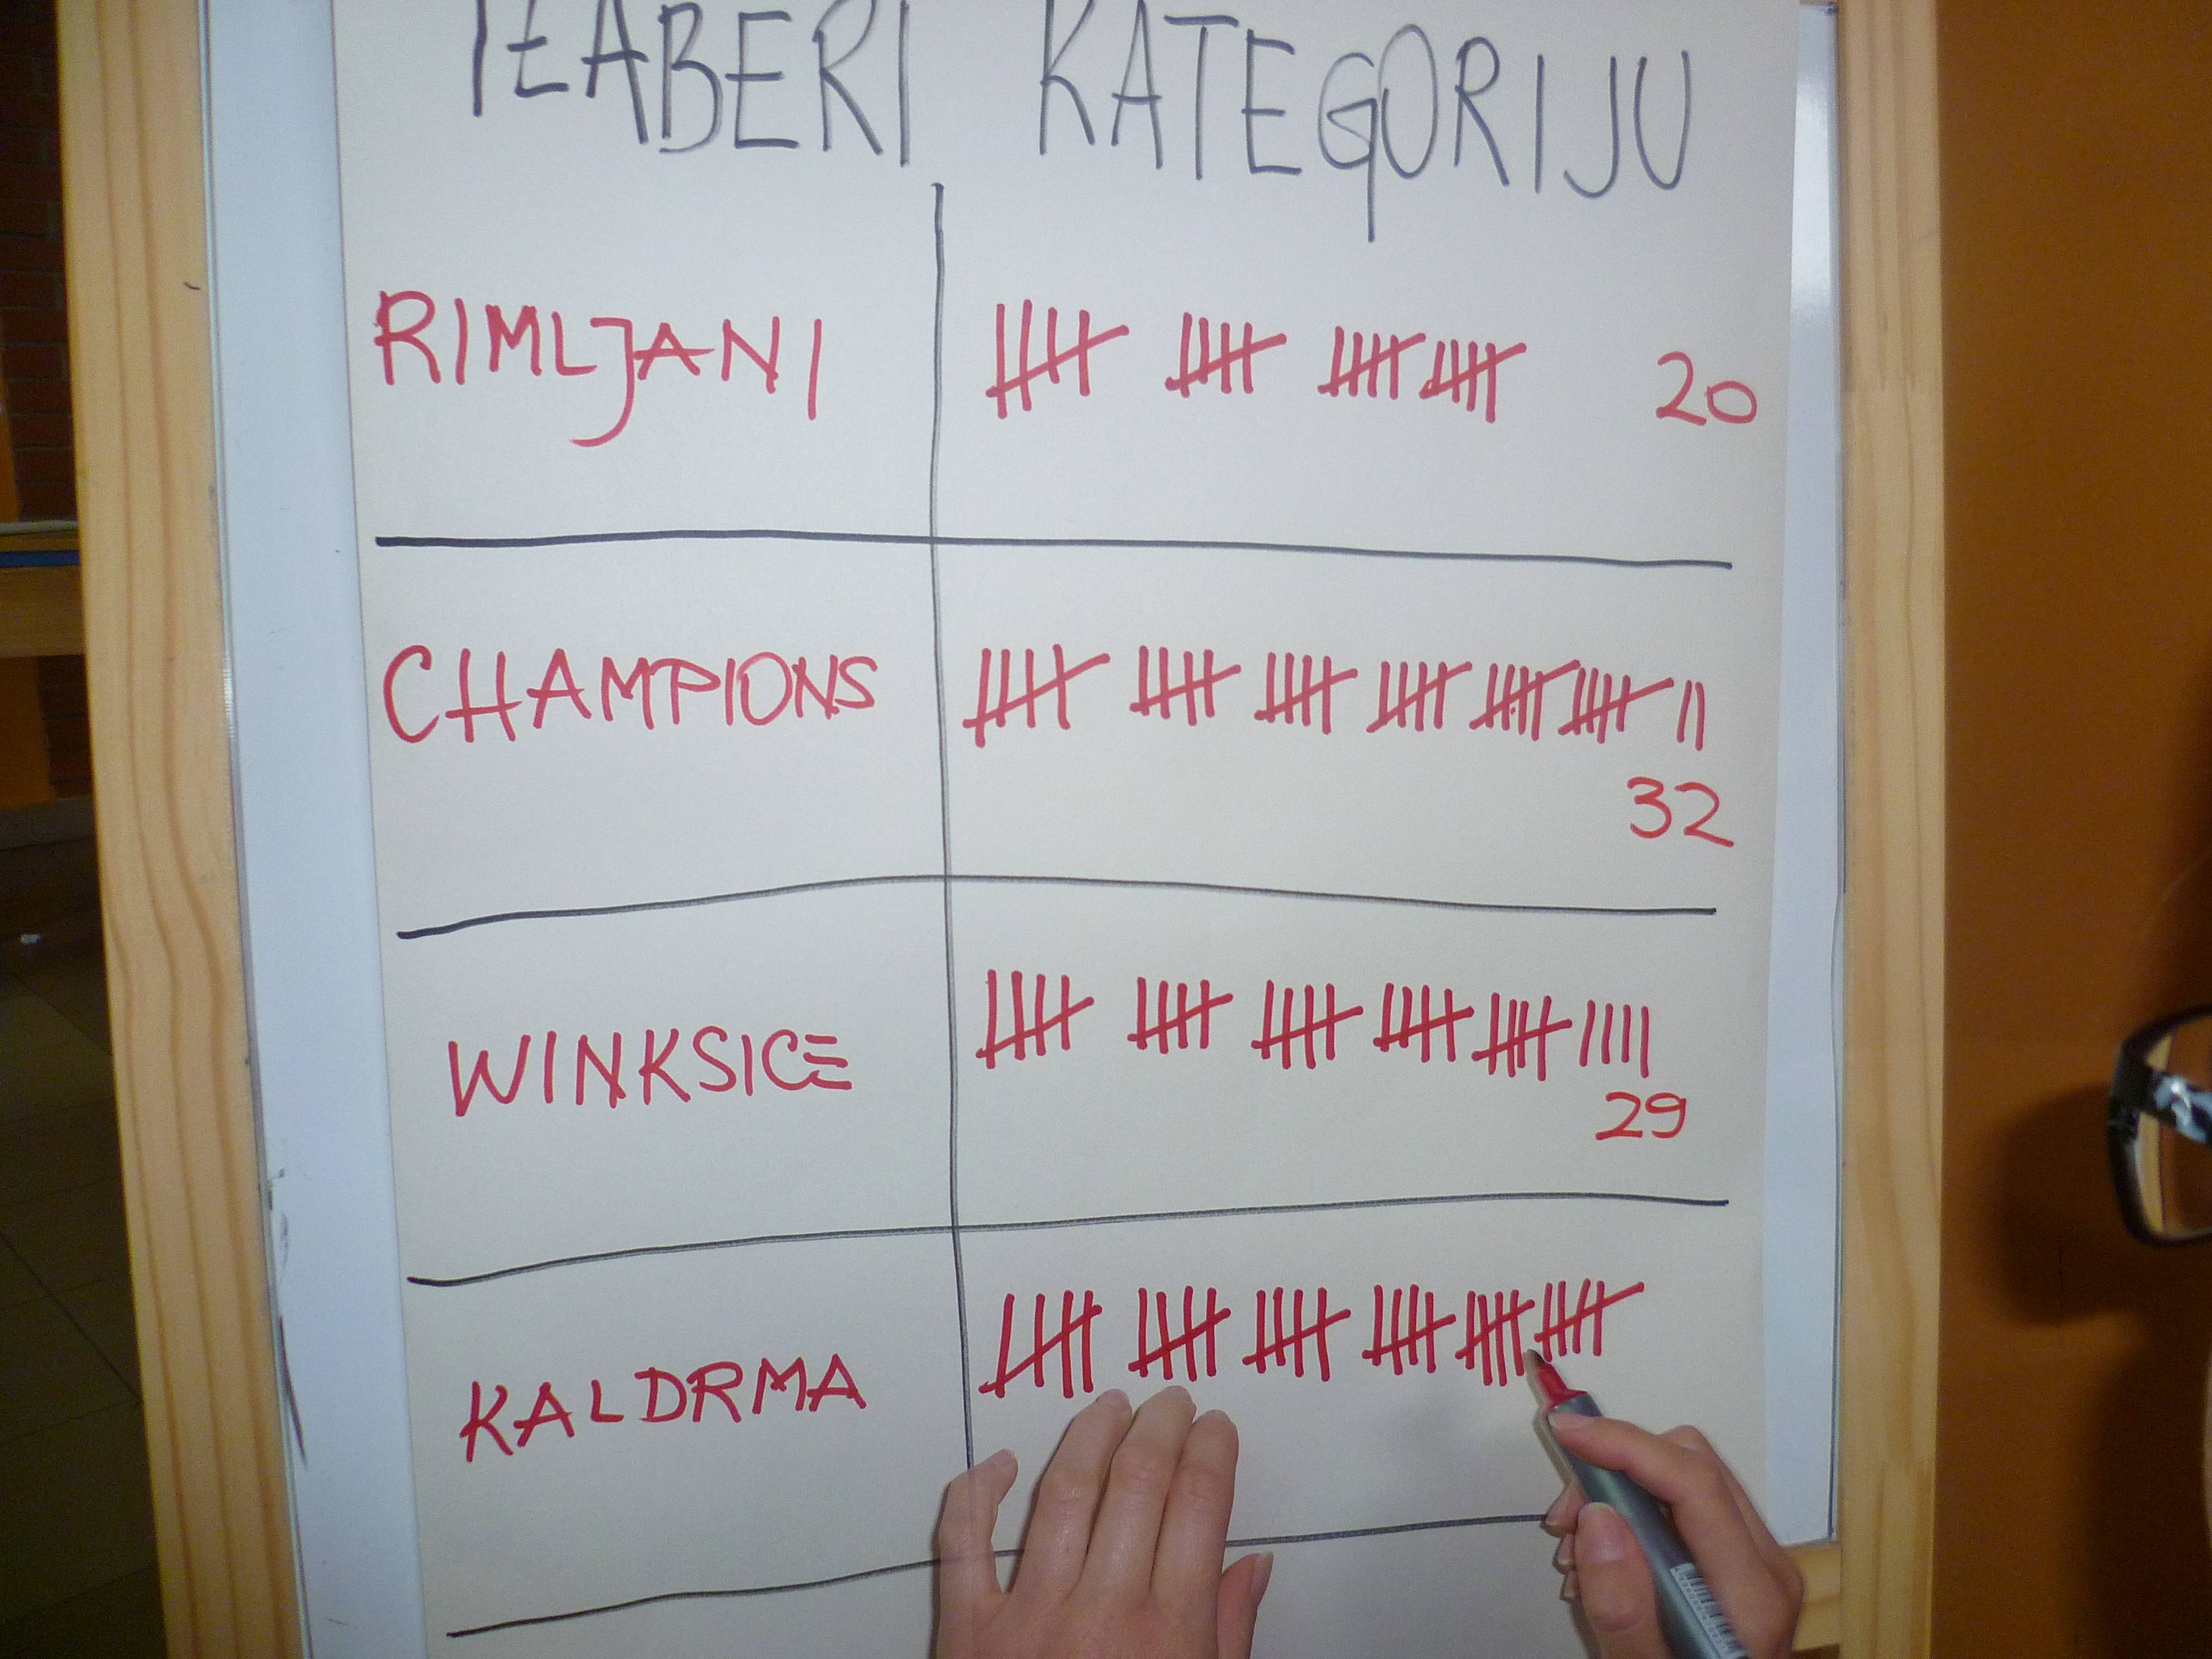 IZABERI KATEGORIJU
RIMLJANI 20
CHAMPIONS 32
WINKSICE 29
KALDRMA